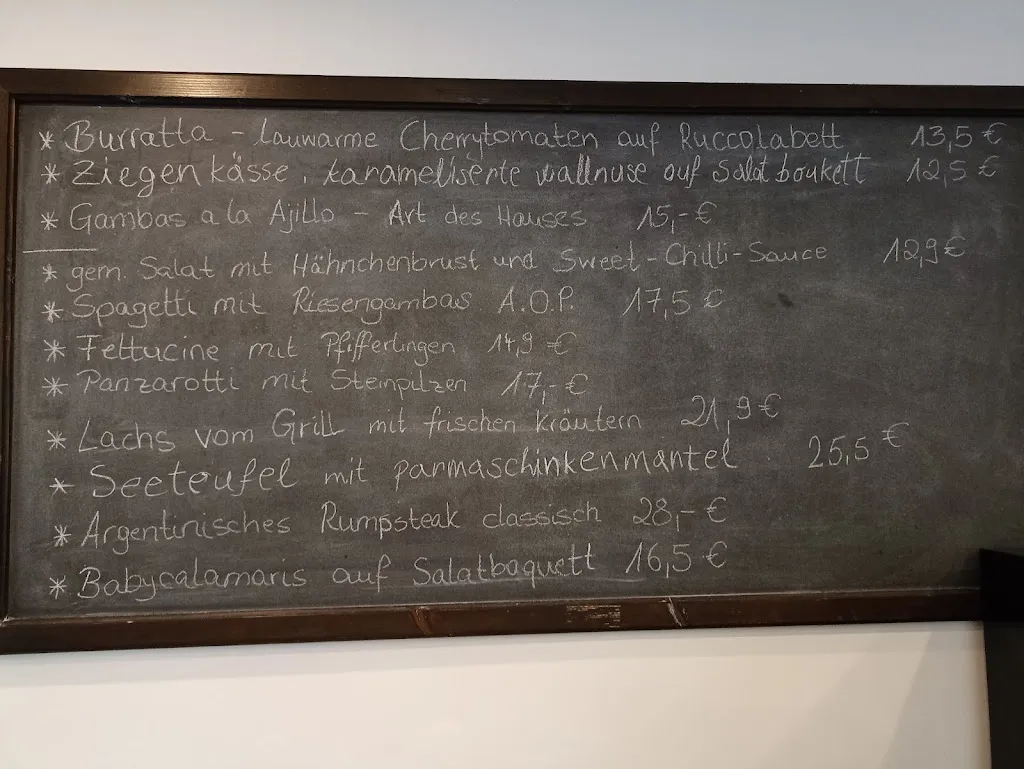 * Burratta - lauwarme Cherrytomaten auf Ruccolabett 13,5 €
* Ziegenkässe, karamelisente wallnuse auf Salat boukett 12,5 €
* Gambas a la Ajillo - Art des Hauses 15,- €
* gem. Salat mit Hähnchenbrust und Sweet-Chilli-Sauce 12,9 €
* Spagetti mit Riesengambas A.O.P. 17,5 €
* Fettucine mit Pfifferlingen 14,9 €
* Panzarotti mit Steinpilzen 17,- €
* Lachs vom Grill mit frischen kräutern 21,9 €
* Seeteufel mit parmaschinkenmantel 25,5 €
* Argentinisches Rumpsteak classisch 28,- €
* Babycalamaris auf Salatbaquett 16,5 €